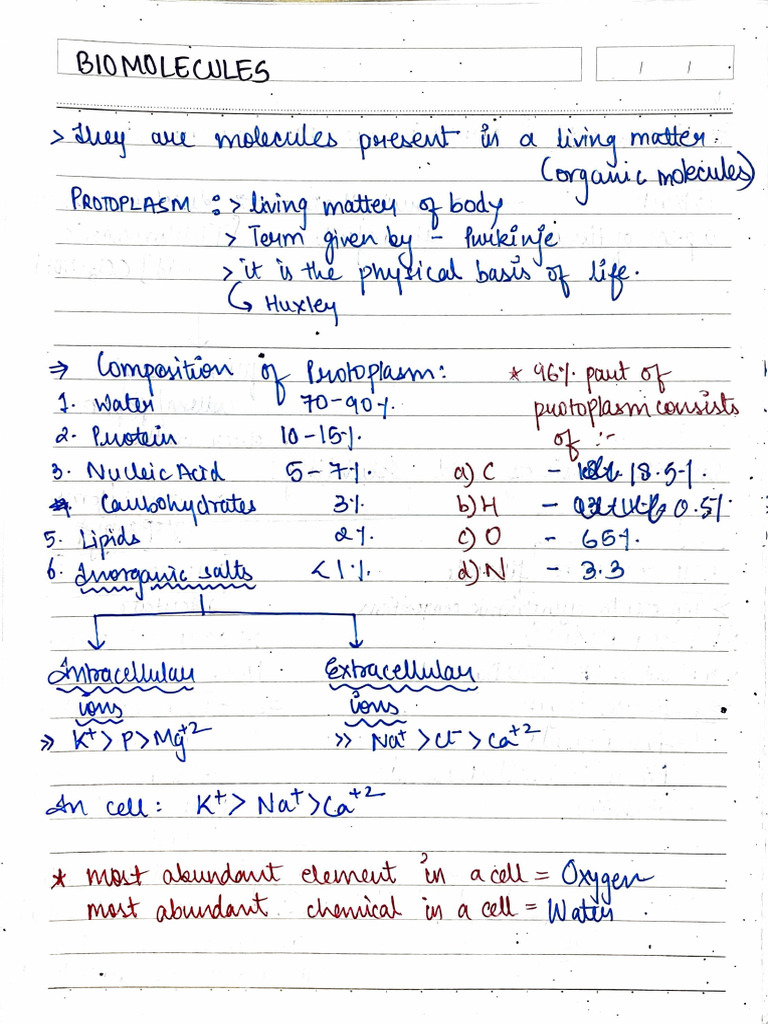 BIOMOLECULES
> They are molecules present in a living matter.
(organic molecules)
PROTOPLASM :> living matter of body
> Term given by - Purikinje
> it is the physical basis of life.
↳ Huxley
⇒ Composition of Protoplasm:
1. Water 70-90%
2. Protein 10-15%
3. Nucleic Acid 5-7%
4. Carbohydrates 3%
5. Lipids 2%
6. Inorganic salts <1%
* 96% part of
protoplasm consists
of :-
a) C - 18.5%
b) H - 0.5%
c) O - 65%
d) N - 3.3
Intracellular ions
>> K+ > P > Mg+2
Extracellular ions
>> Na+ > Cl- > Ca+2
In cell: K+ > Na+ > Ca+2
* most abundant element in a cell = Oxygen
most abundant chemical in a cell = Water.